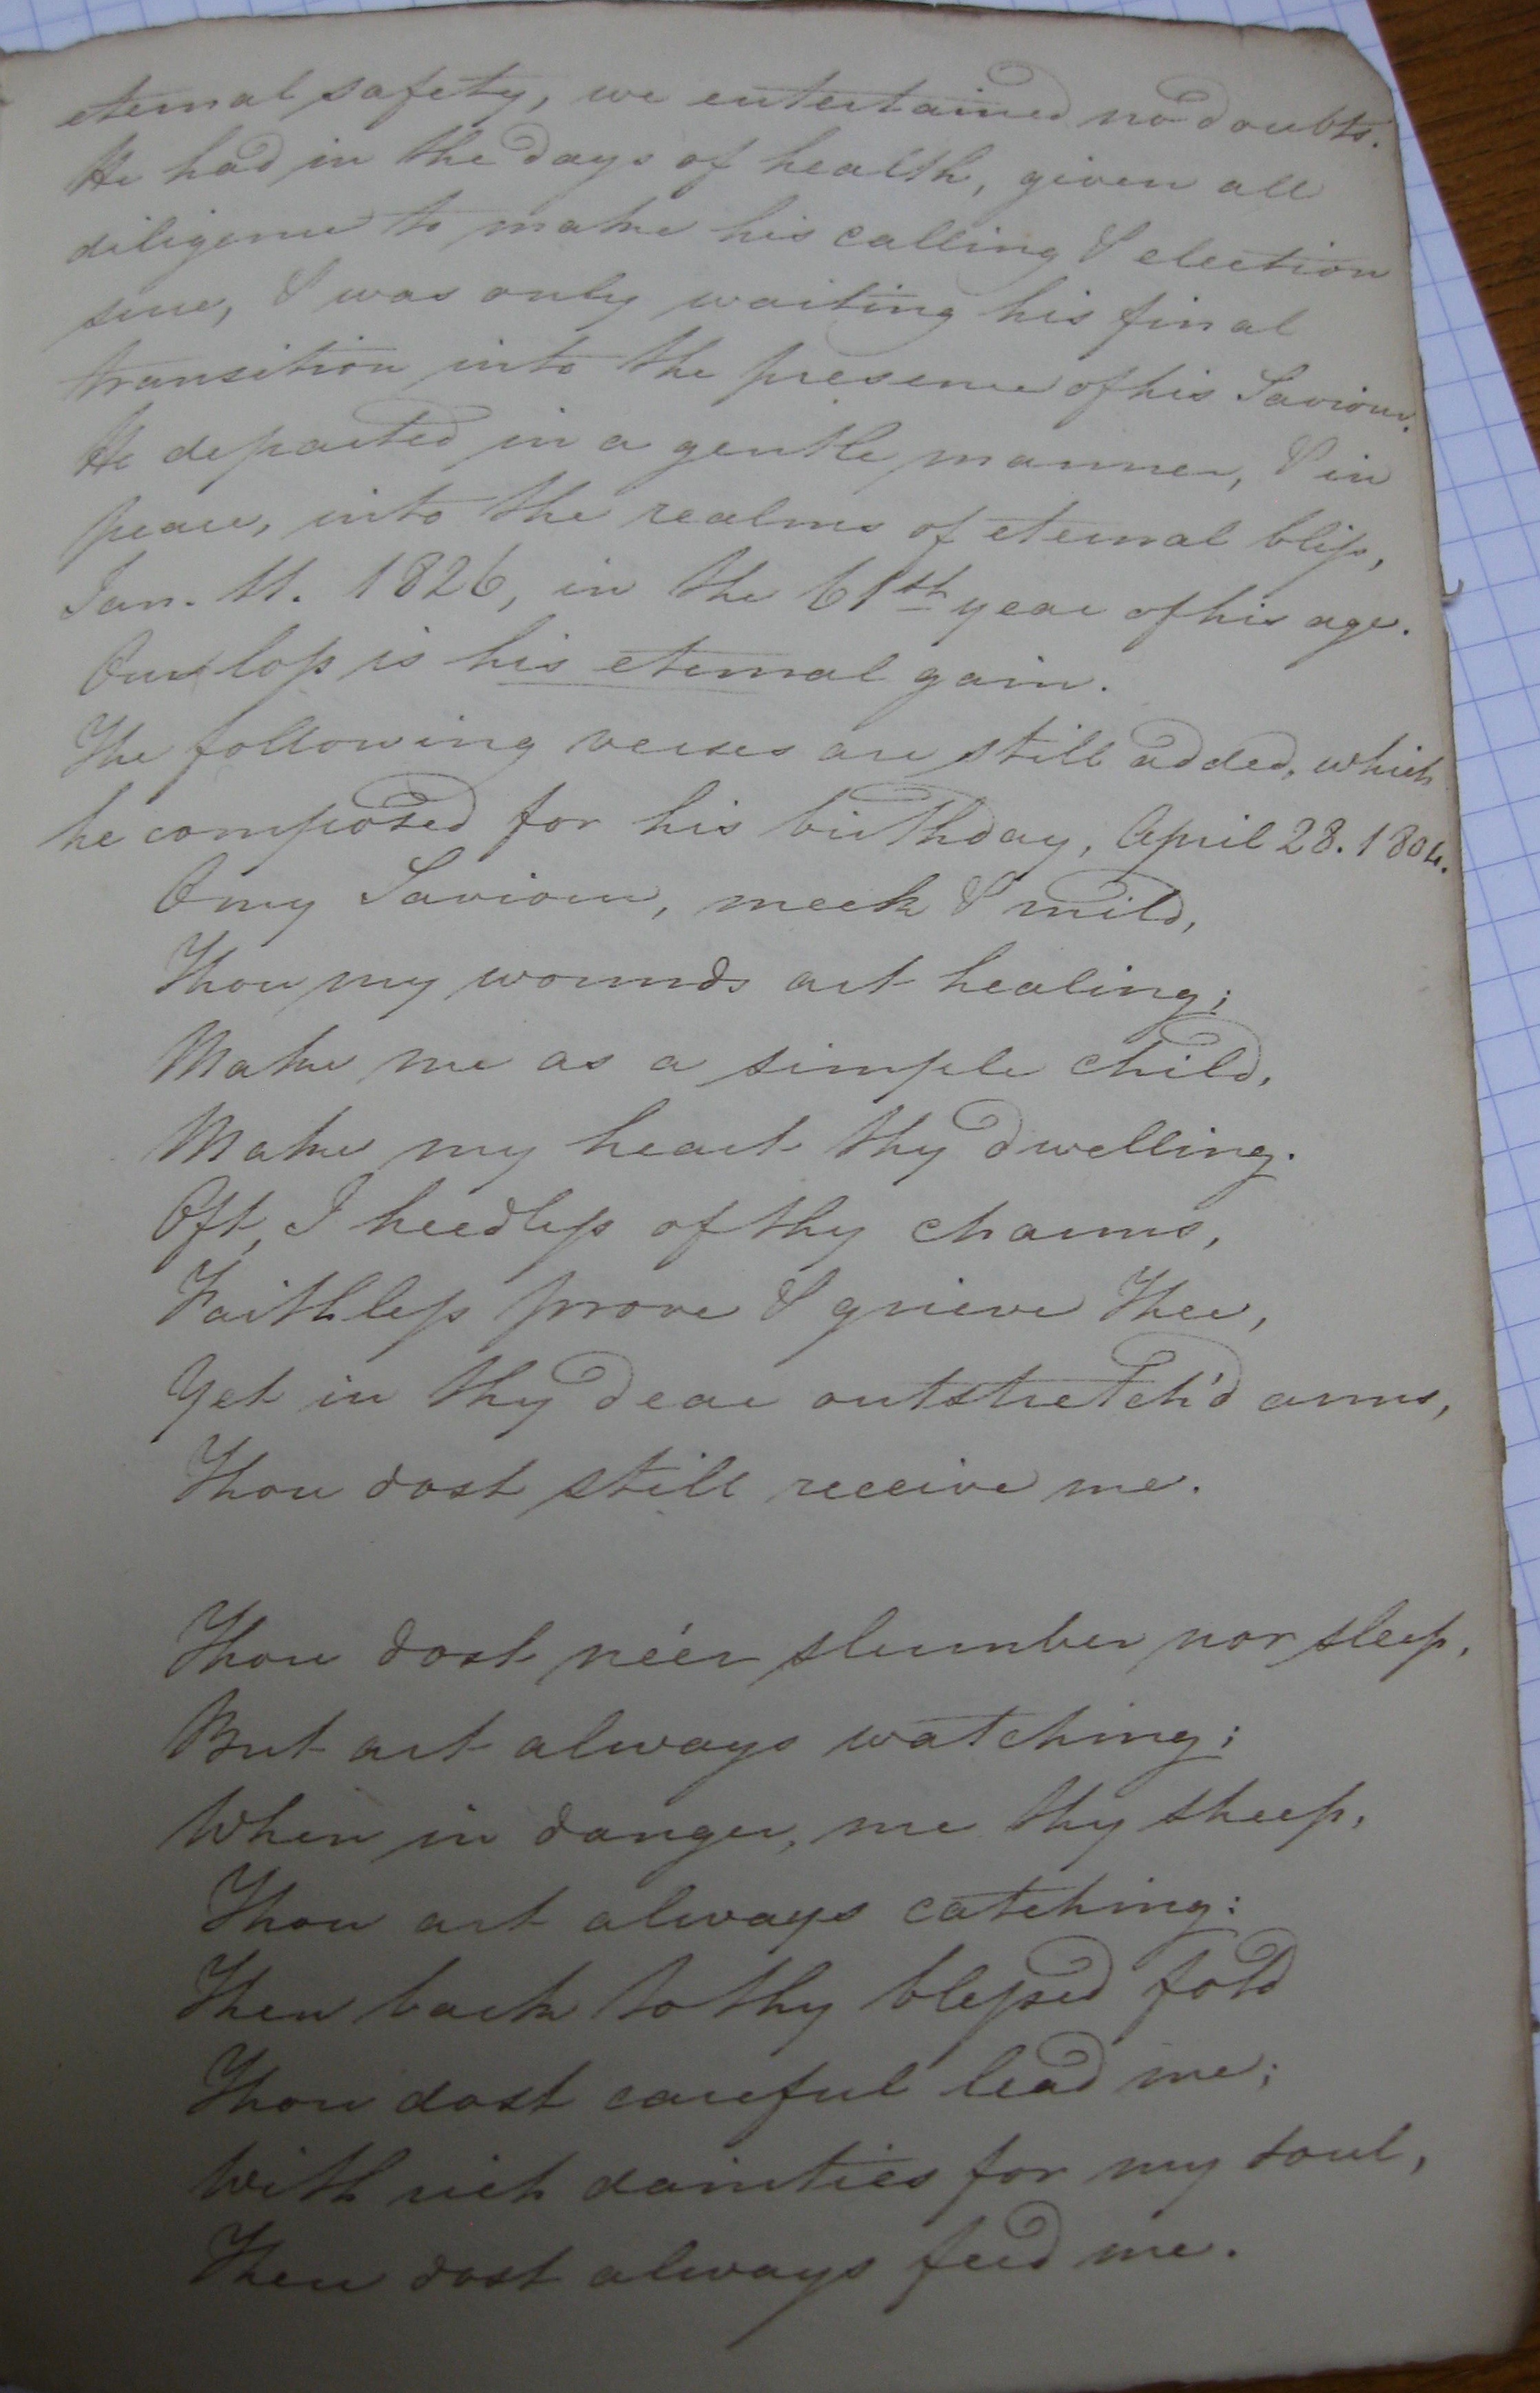 eternal safety, we entertained no doubts.
He had in the days of health, given all
diligence to make his calling & election
sure, & was only waiting his final
transition into the presence of his Saviour.
He departed in a gentle manner, & in
peace, into the realms of eternal bliss,
Jan. 11. 1826, in the 61st year of his age.
Our loss is his eternal gain.
The following verses are still added, which
he composed for his birthday, April 28. 1804.
O my Saviour, meek & mild,
Thou my wounds art healing;
Make me as a simple child,
Make my heart thy dwelling.
Oft, I heedless of thy charms,
Faithless prove & grieve Thee,
Yet in thy dear outstretch'd arms,
Thou dost still receive me.
Thou dost ne'er slumber nor sleep,
But art always watching;
When in danger, me thy sheep,
Thou art always catching:
Then back to thy blessed fold
Thou dost careful lead me;
With rich dainties for my soul,
Then dost always feed me.